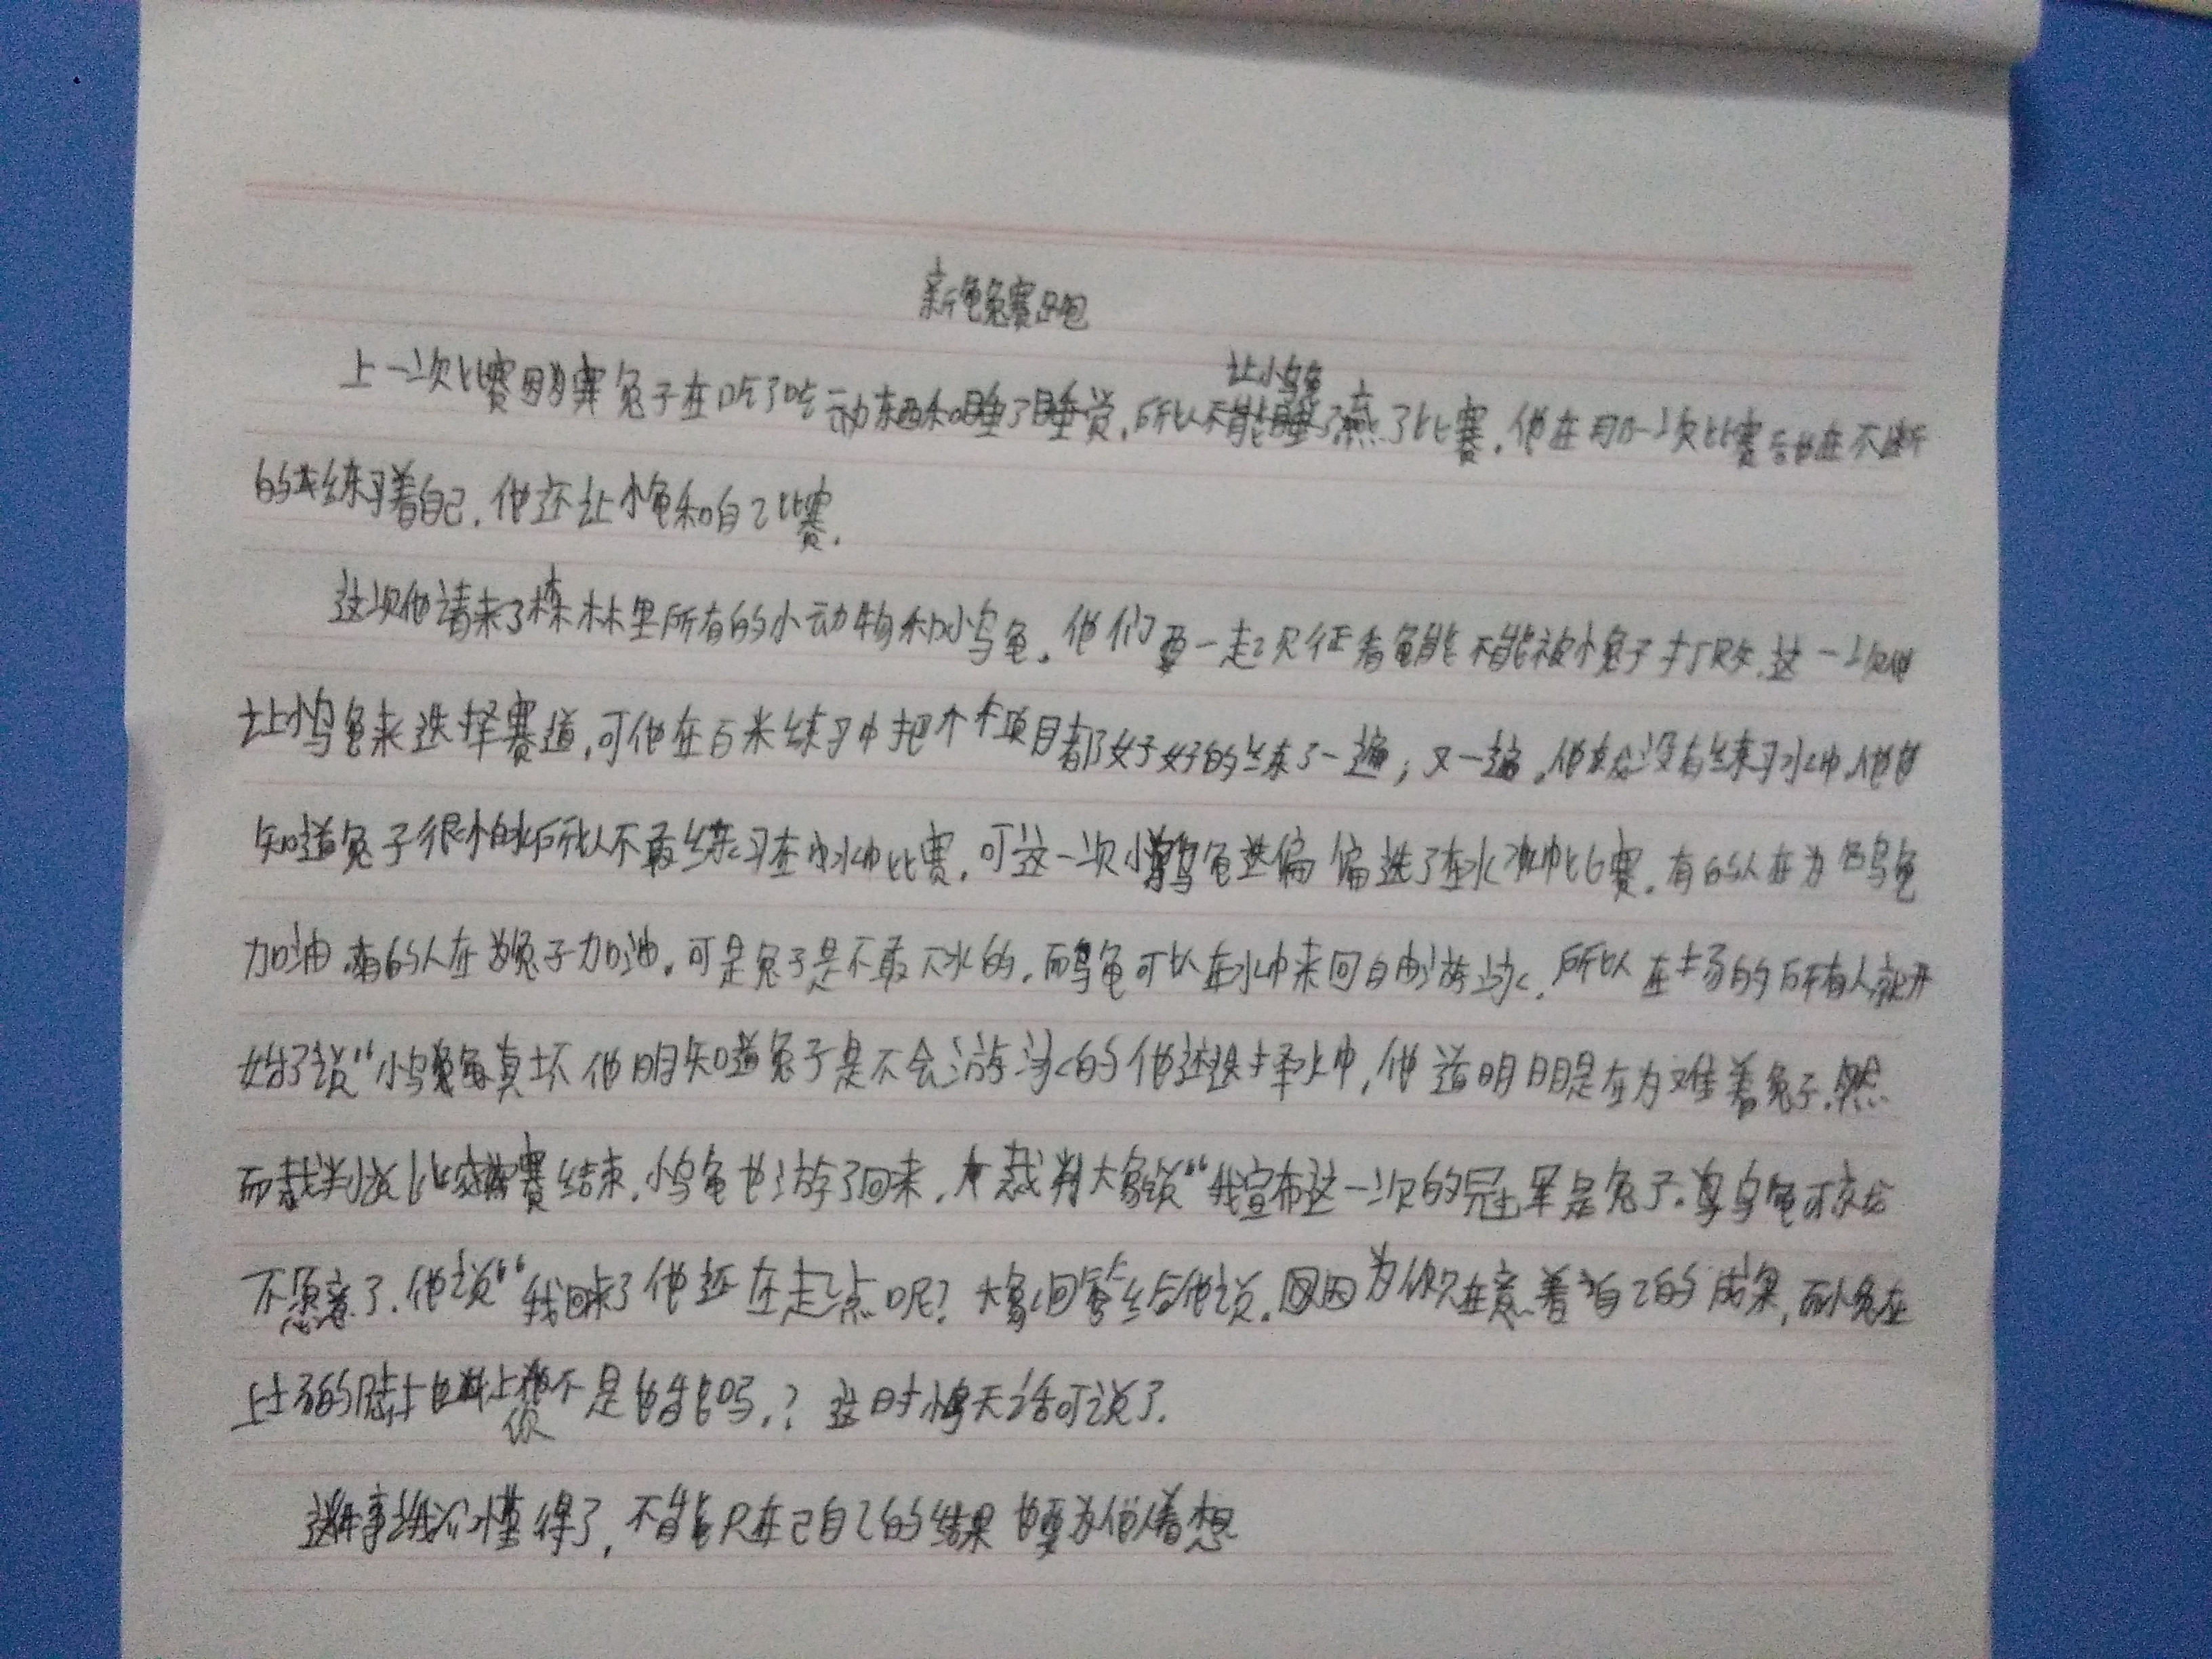 新龟兔赛跑
上一次比赛因为兔子在吃了吃东西和睡了睡觉，所以让小乌龟赢了比赛，他在那一次比赛后也在不断
的练习着自己，他还让小龟和自己比赛.
这次他请来了森林里所有的小动物和小乌龟。他们要一起见证看龟能不能被小兔子打败，这一次他
让小乌龟来选择赛道，可他在百米练习中把个个项目都好好的练了一遍；又一遍，他没有练习水中，他也
知道兔子很怕水所以不敢练习在水中比赛，可这一次小乌龟偏偏选了在水中比赛，有的人在为乌龟
加油 有的人在为兔子加油。可是兔子是不敢下水的，而乌龟可以在水中来回自由游泳，所以在场的所有人就开
始了说“小乌龟真坏他明知道兔子是不会游泳的他还选择水中，他这明明是在为难着兔子，然
而裁判说比赛结束，小乌龟也游了回来，裁判大象说“我宣布这一次的冠军是兔子。乌龟可
不愿意了，他说“我回来了他还在起点呢？大象回答给他说，因为你只在意着自己的成果，而小兔在
上场的时 你不是也能吗，？这时小龟无话可说了.
这件事我们懂得了，不能只在己自己的结果也要为他人着想